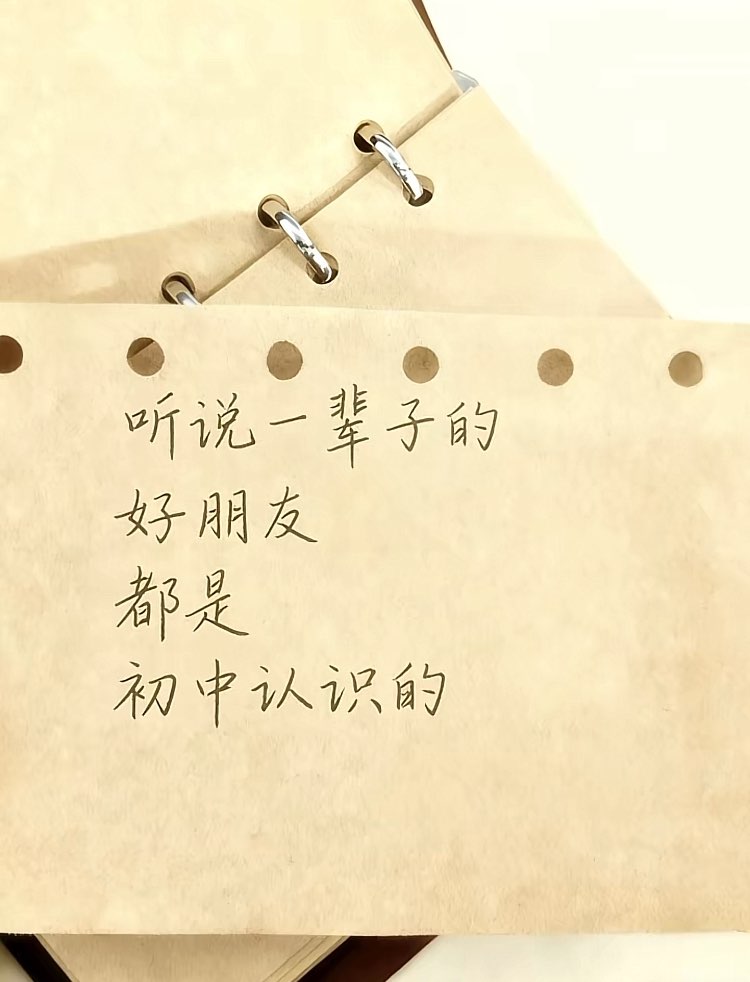 听说一辈子的
好朋友
都是
初中认识的